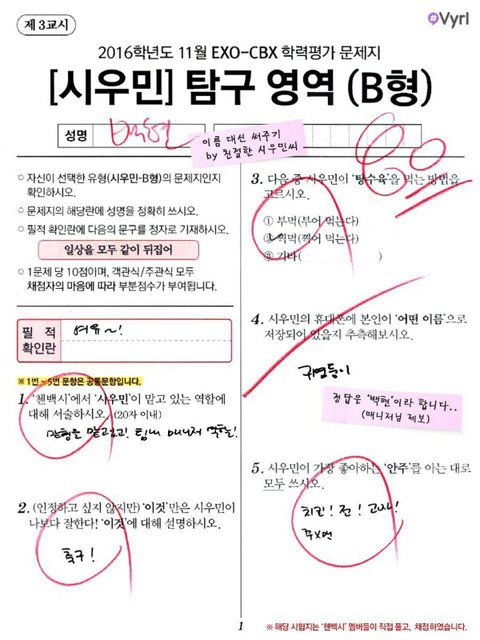 제 3 교시
Vyrl
2016학년도 11월 EXO-CBX 학력평가 문제지
[시우민] 탐구 영역 (B형)
성명
이름 대신 써주기
by 친절한 시우민씨
○ 자신이 선택한 유형(시우민-B형)의 문제지인지
확인하시오.
○ 문제지의 해당란에 성명을 정확히 쓰시오.
○ 필적 확인란에 다음의 문구를 정자로 기재하시오.
일상을 모두 같이 뒤집어
○ 1문제 당 10점이며, 객관식/주관식 모두
채점자의 마음에 따라 부분점수가 부여됩니다.
필 적
확인란
여유~!
※ 1번 ~ 5번 문항은 공통문항입니다.
1. '첸백시'에서 '시우민'이 맡고 있는 역할에
대해 서술하시오. (20자 이내)
맏형을 맡고있고! 팀내 매니저 역할!
2. (인정하고 싶지 않지만) '이것'만은 시우민이
나보다 잘한다! '이것'에 대해 설명하시오.
축구!
60
3. 다음 중 시우민이 '탕수육'을 먹는 방법을
고르시오.
① 부먹(부어 먹는다)
② 찍먹(찍어 먹는다)
③ 기타( )
4. 시우민의 휴대폰에 본인이 '어떤 이름'으로
저장되어 있을지 추측해보시오.
귀염둥이
정답은 '백현'이라 합니다..
(매니저님 제보)
5. 시우민이 가장 좋아하는 '안주'를 아는 대로
모두 쓰시오.
치킨! 전!
1
※ 해당 시험지는 '첸백시' 멤버들이 직접 풀고, 채점하였습니다.